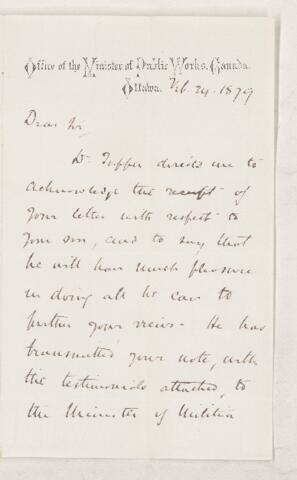 Office of the Minister of Public Works, Canada.
Ottawa. Feb. 24. 1879
Dear Sir
Dr. Tupper directs me to
acknowledge the receipt of
your letter with respect to
your son, and to say that
he will have much pleasure
in doing all he can to
further your views - He has
transmitted your note, with
the testimonials attached, to
the Minister of Militia